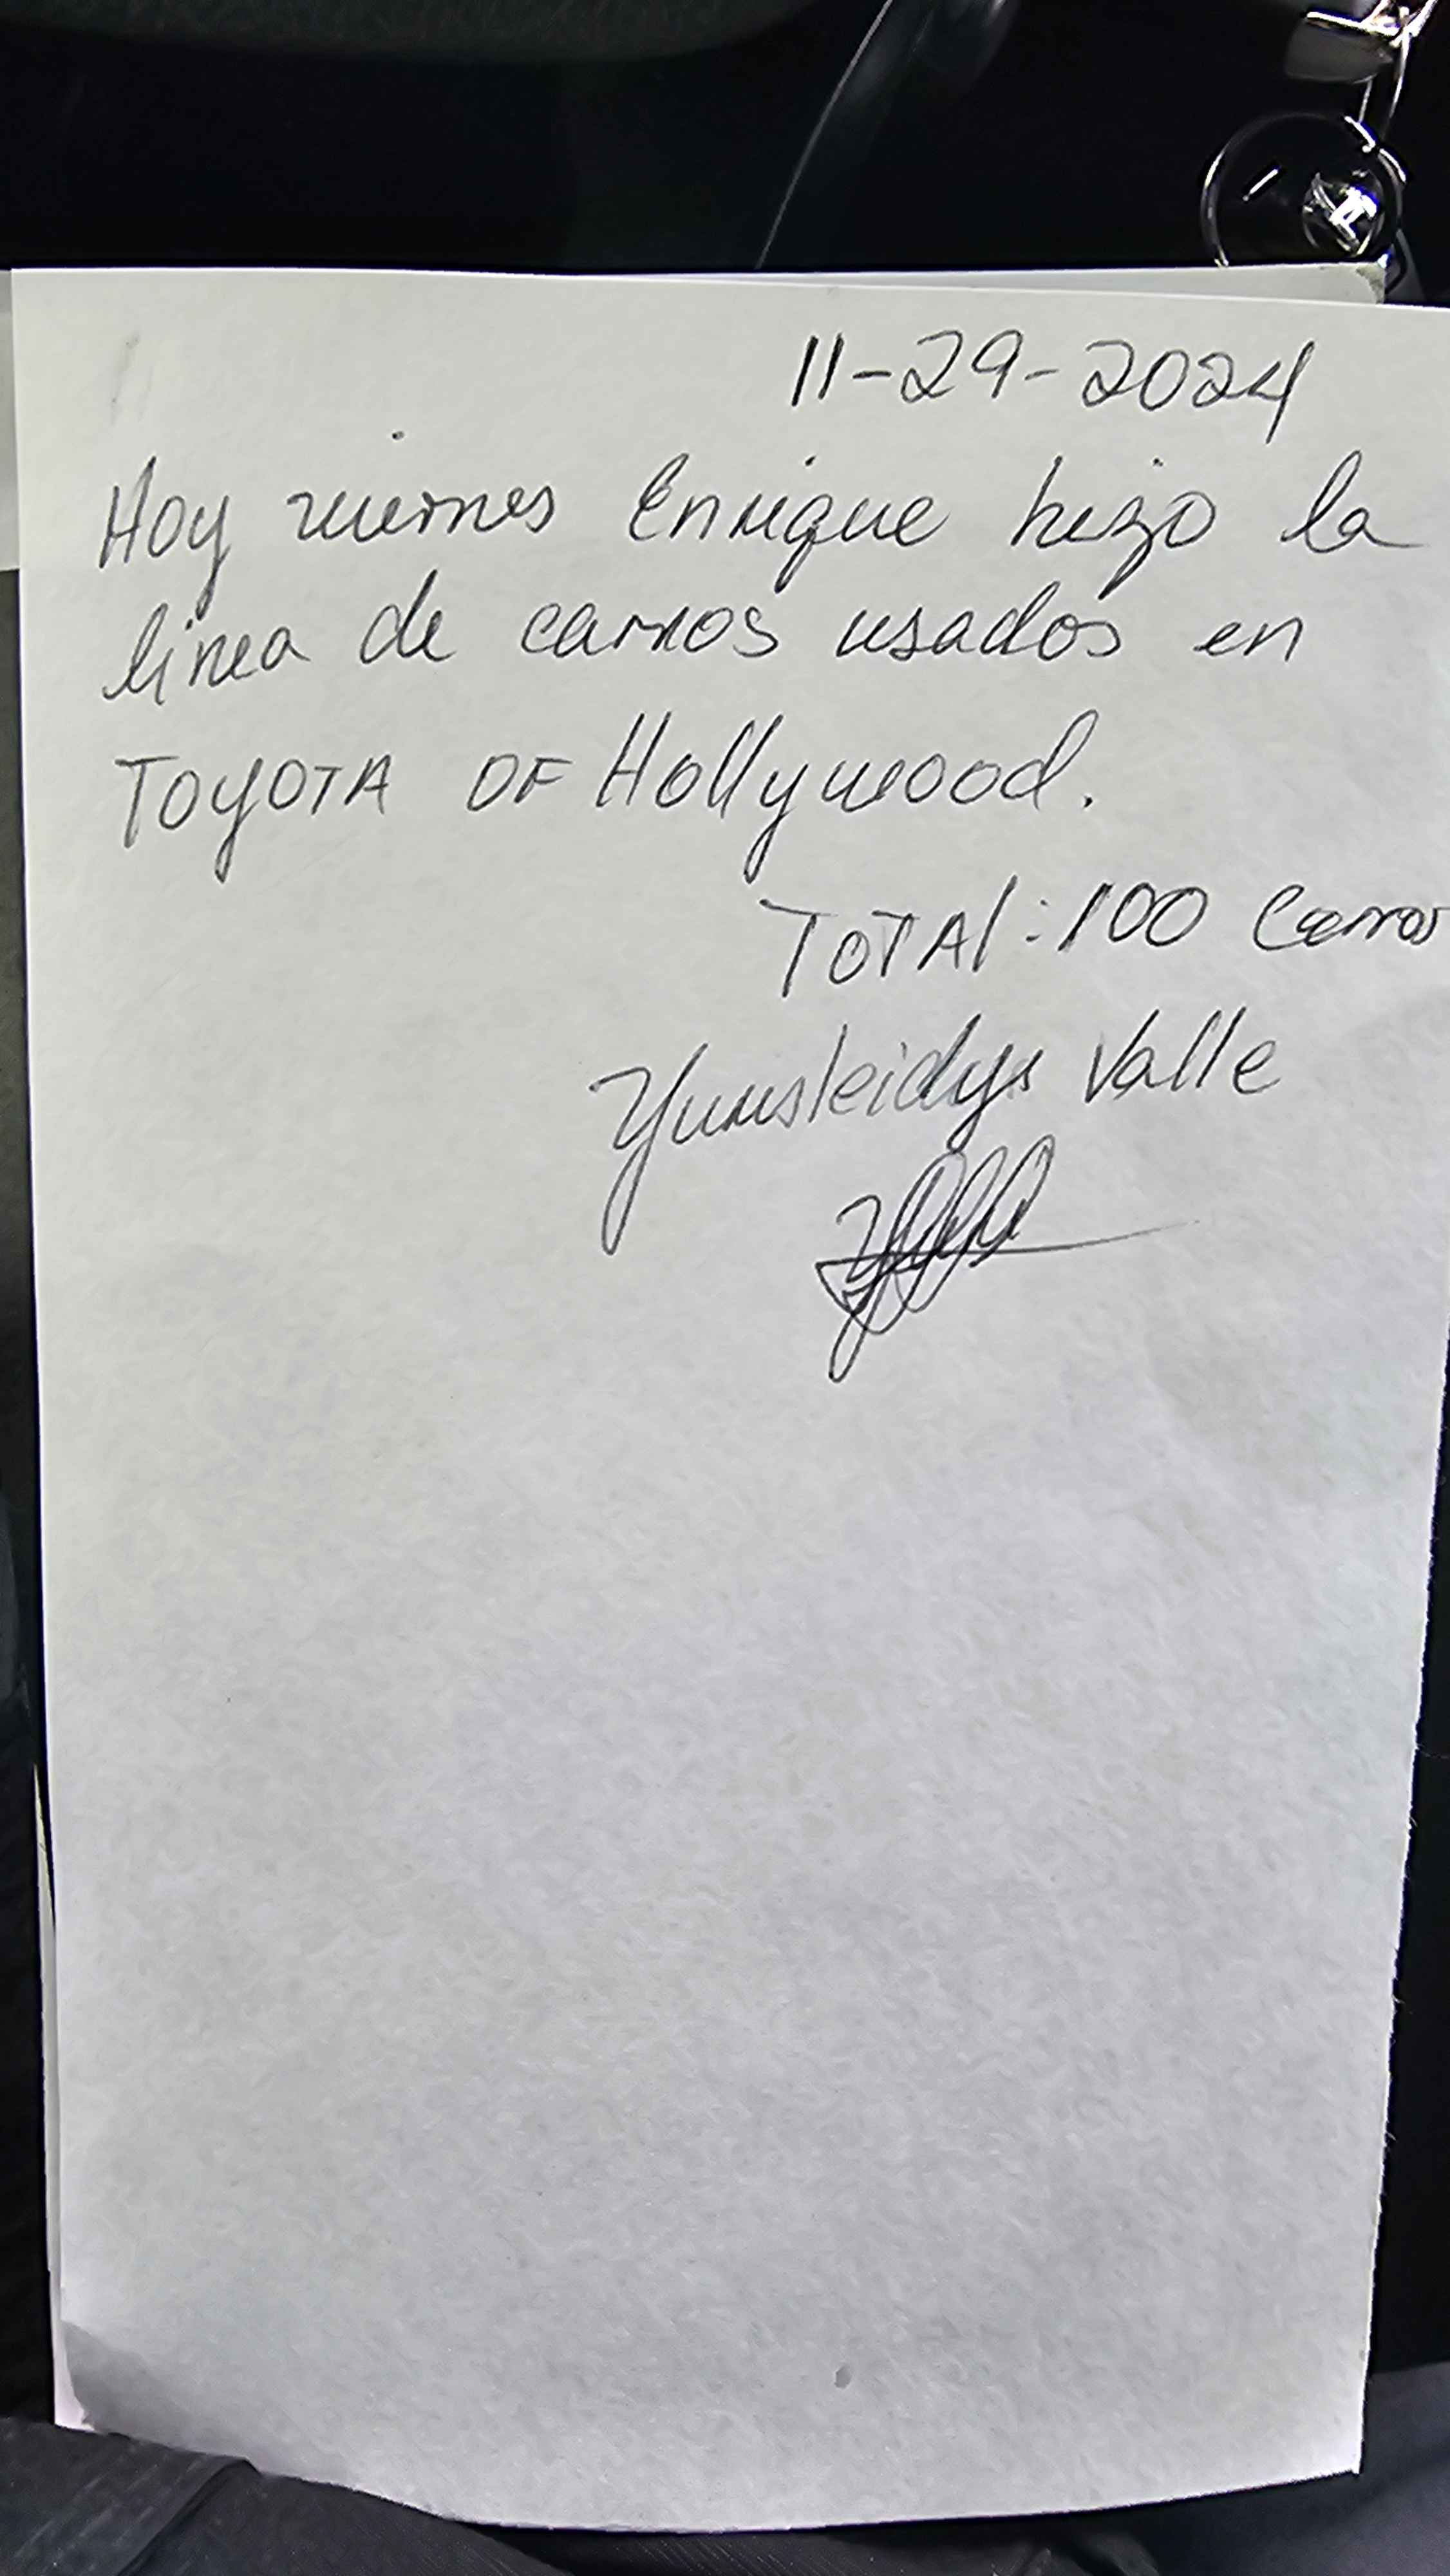 11-29-2024
Hoy viernes Enrique hizo la
linea de carros usados en
TOYOTA OF Hollywood.
TOTAl: 100 Carros
Valle